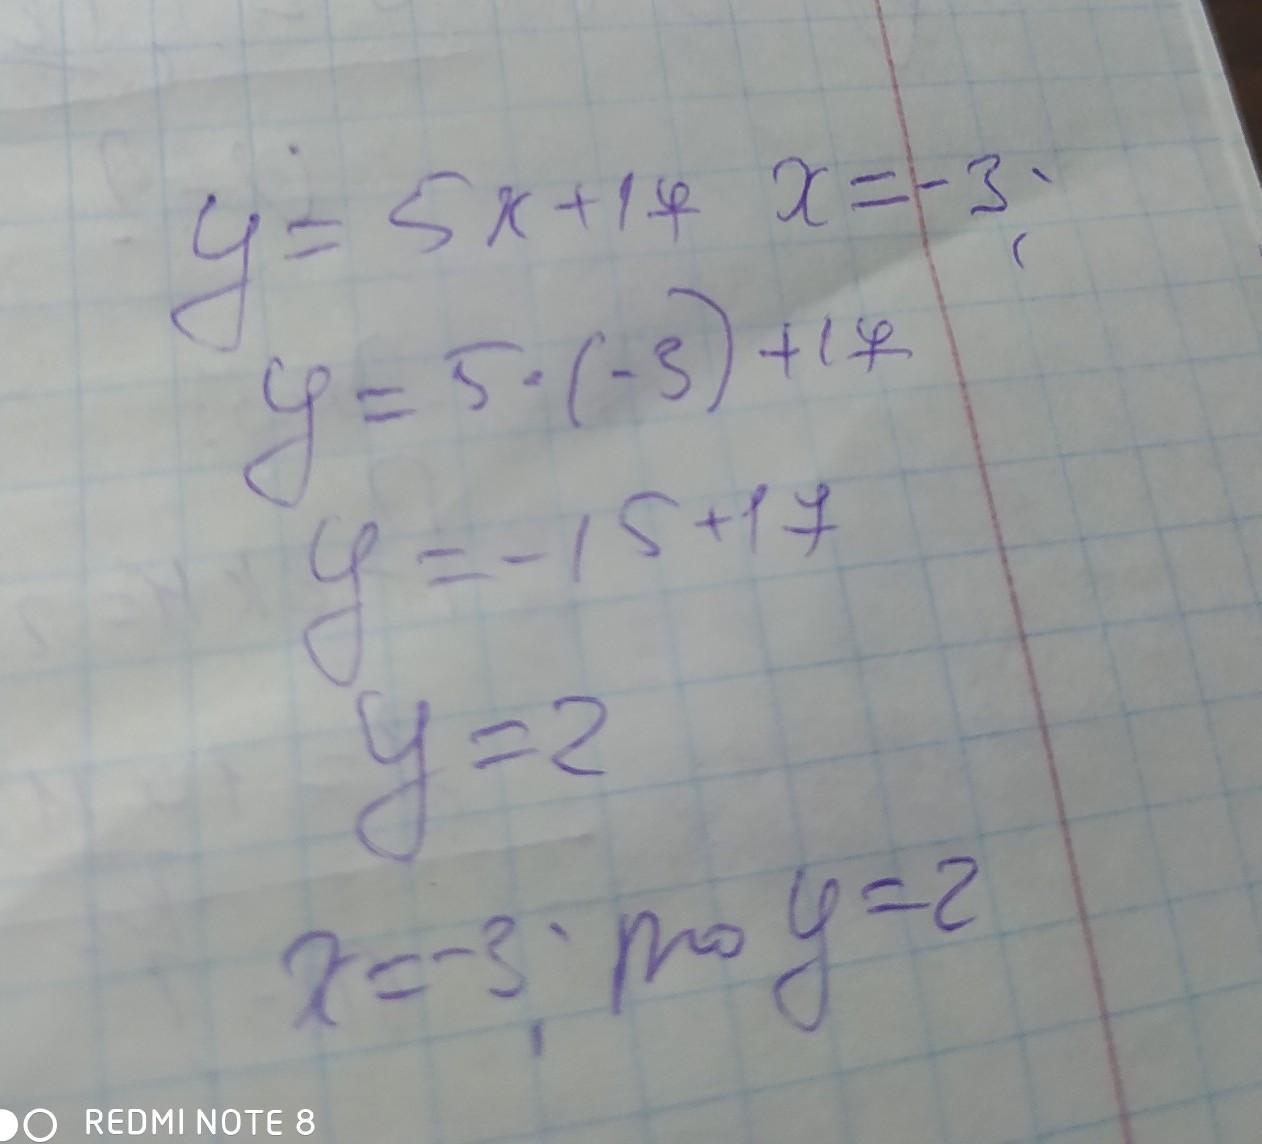 y = 5x + 17 x = -3;
y = 5 · (-3) + 17
y = -15 + 17
y = 2
x = -3; то y = 2
REDMI NOTE 8